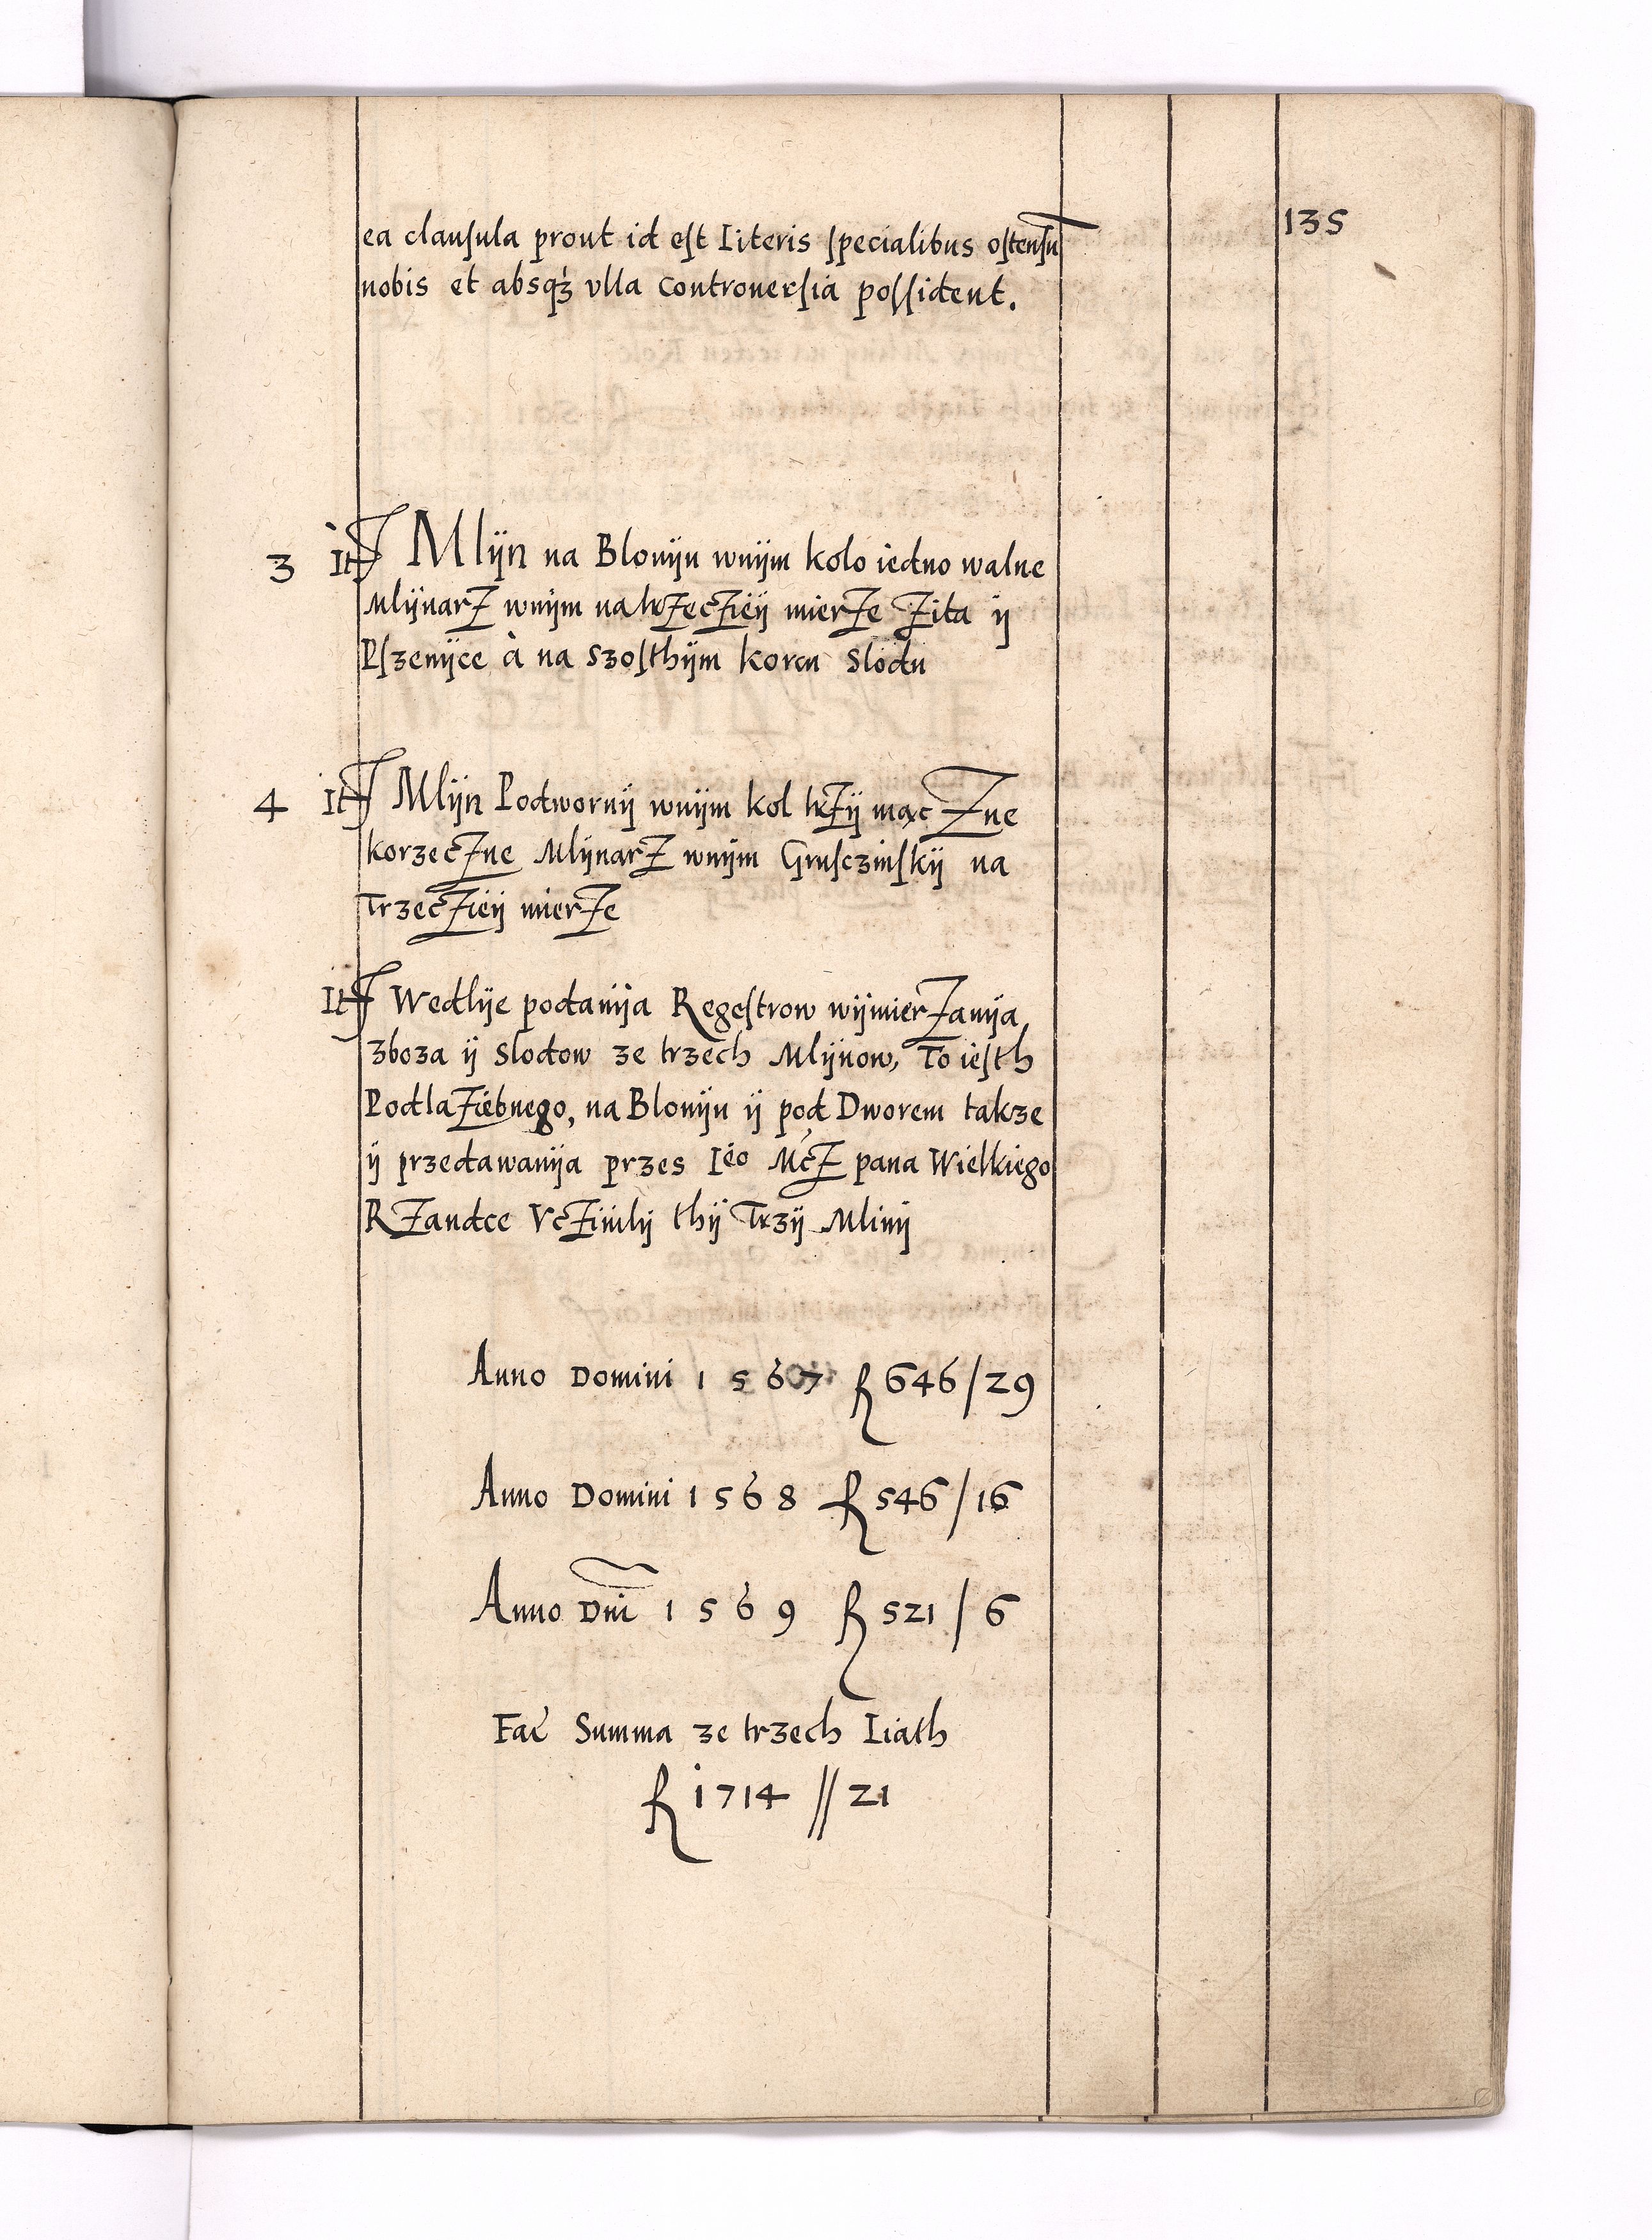 135
ea clausula prout id est literis specialibus ostensū
nobis et absqꝫ vlla controuersia possident.
3 It Mlijn na Blonijn wnijm kolo iedno walne
Mlijnarz wnijm na trzecziеij mierze zita ij
Pszenijce à na szosthijm korcu slodu
4 It Mlijn Podwornij wnijm kol trzij mączne
korzeczne Mlijnarz wnijm Grusczinskij na
Trzeczieij mierze
It Wedlije podanija Regestrow wijmierzanija
zboza ij slodow ze trzech Mlijnow, To iesth
Podlaziebnego, na Blonijn ij pod Dworem takze
ij przedawanija przes Ie͠o Mcz pana Wielkiego
Rzandce Vczinilij thij Trzij Mlinij
Anno Domini 1567 R 646/29
Anno Domini 1568 R 546/16
Anno Dni 1569 R 521/6
Fac Summa ze trzech Liath
R 1714 // 21